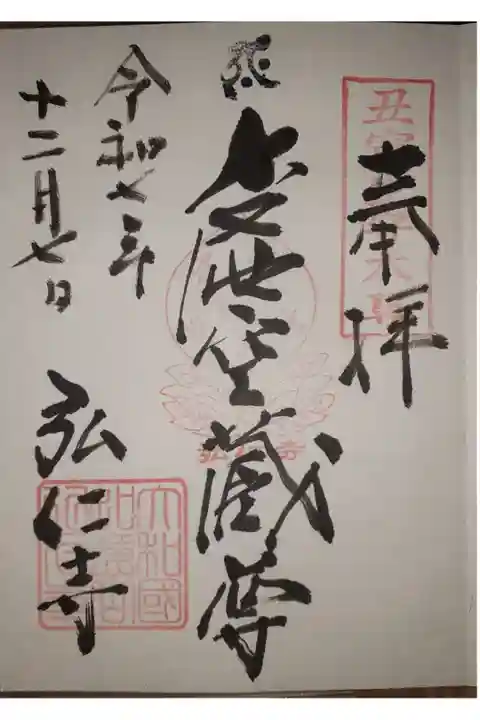 奉拝
丑寅
虚空蔵尊
弘仁寺
令和七年
十二月七日
弘仁寺
大和國